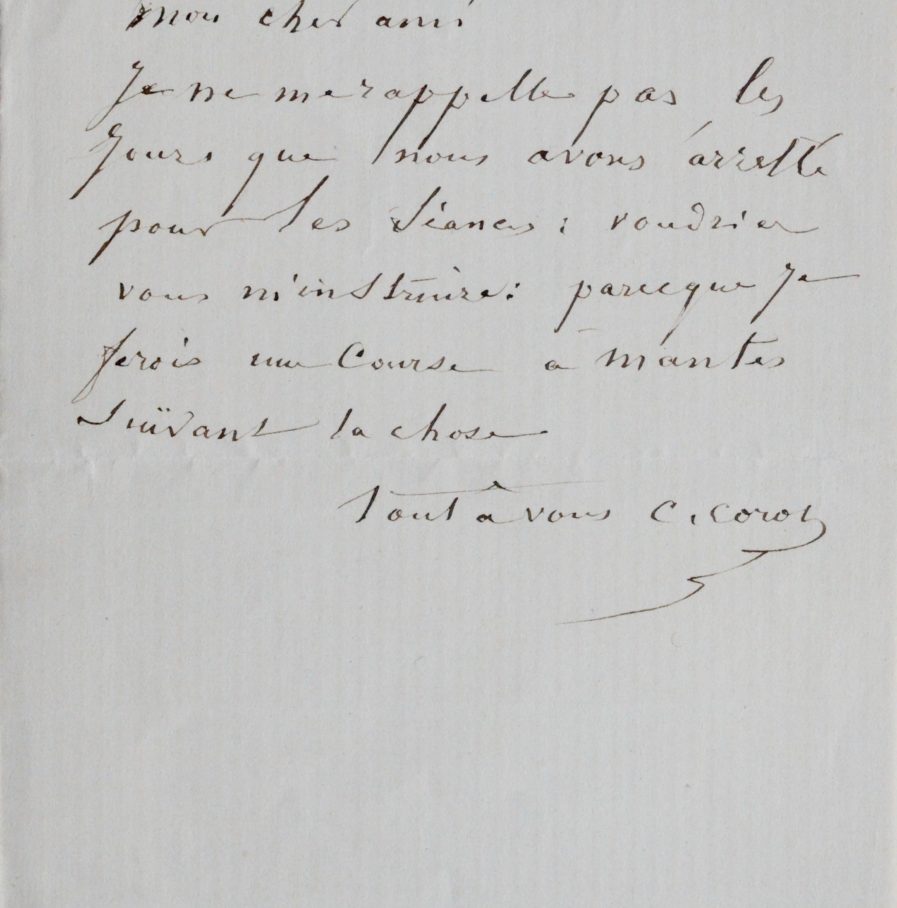 Mon cher ami
Je ne me rappelle pas les
Jours que nous avons arretté
pour les séances : voudriez
vous m'instruire : parceque je
ferois une Course à mantes
suivant la chose
tout à vous C. Corot